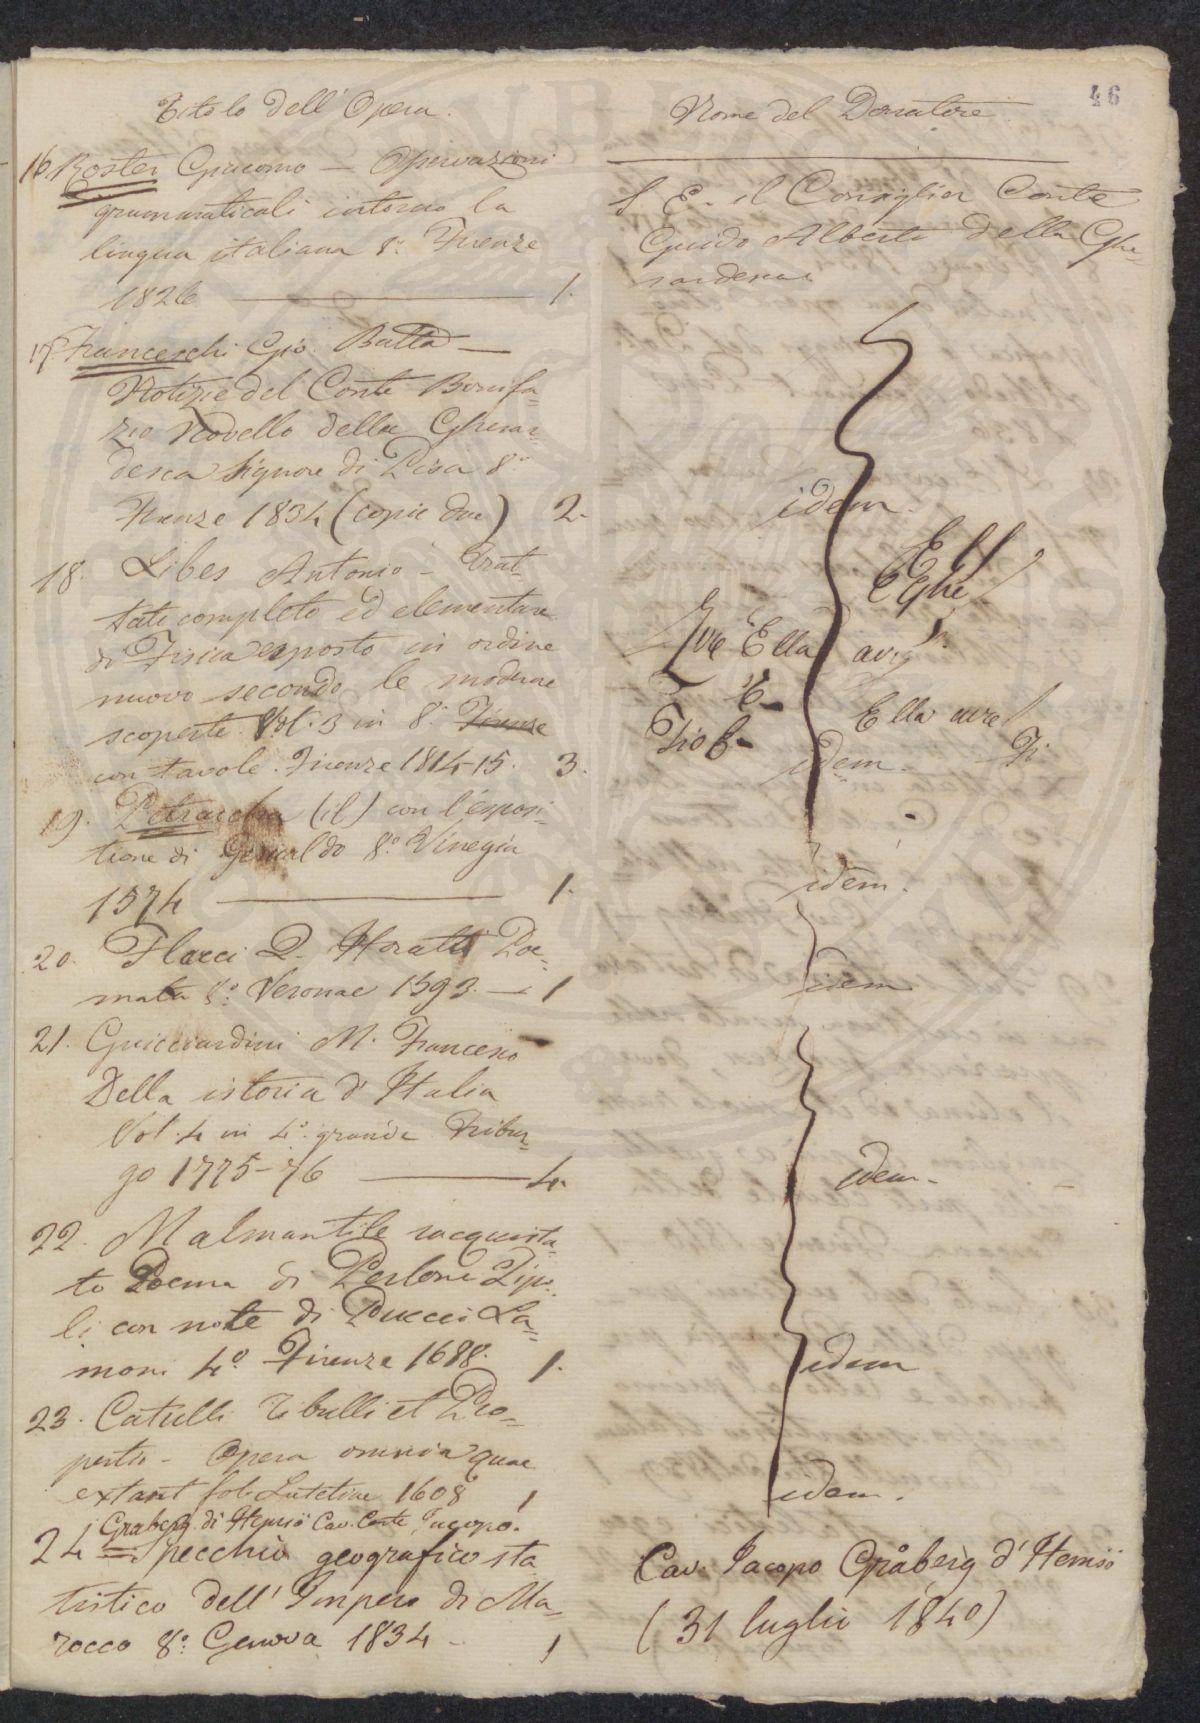 46
Titolo dell' Opera.
Nome del Donatore
16 Roster Giacomo — Osservazioni
grammaticali intorno la
lingua italiana 8.° Firenze
1826 1.
S. E. il Consiglier Conte
Guido Alberto della Ghe=
rardesca
17. Franceschi Gio. Batta —
Notizie del Conte Bonifa=
zio Novello della Gherar=
desca Signore di Pisa 8°
Firenze 1834 (copie due) 2.
idem.
18. Libes Antonio — Trat=
tato completo ed elementare
di Fisica esposto in ordine
nuovo secondo le moderne
scoperte Vol. 3 in 8.° Firenze
con tavole. Firenze 1814-15. 3.
Ell
Eghe
Ella
E
Ella avre
Fi
idem.
19. Petrarcha (il) con l'esposi=
tione di Gesualdo 8.° Vinegia
1574 1.
idem.
20. Flacci Q. Horatii Poe=
mata 8.° Veronae 1593. — 1
idem
21. Guicciardini M. Francesco
Della istoria d' Italia
Vol. 4 in 4.° grande Fribur=
go 1775-76 4.
idem.
22. Malmantile racquista=
to Poema di Perlone Zipo=
li con note di Puccio La=
moni 4.° Firenze 1688. 1.
idem
23. Catulli Tibulli et Pro=
pertii — Opera omnia quae
extant fol. Lutetiae 1608 1
idem.
Graberg di Hemsö Cav. Conte Jacopo.
24 = Specchio geografico sta
tistico dell' Impero di Ma=
rocco 8.° Genova 1834 — 1
Cav. Jacopo Gråberg d' Hemsö
(31 luglio 1840)